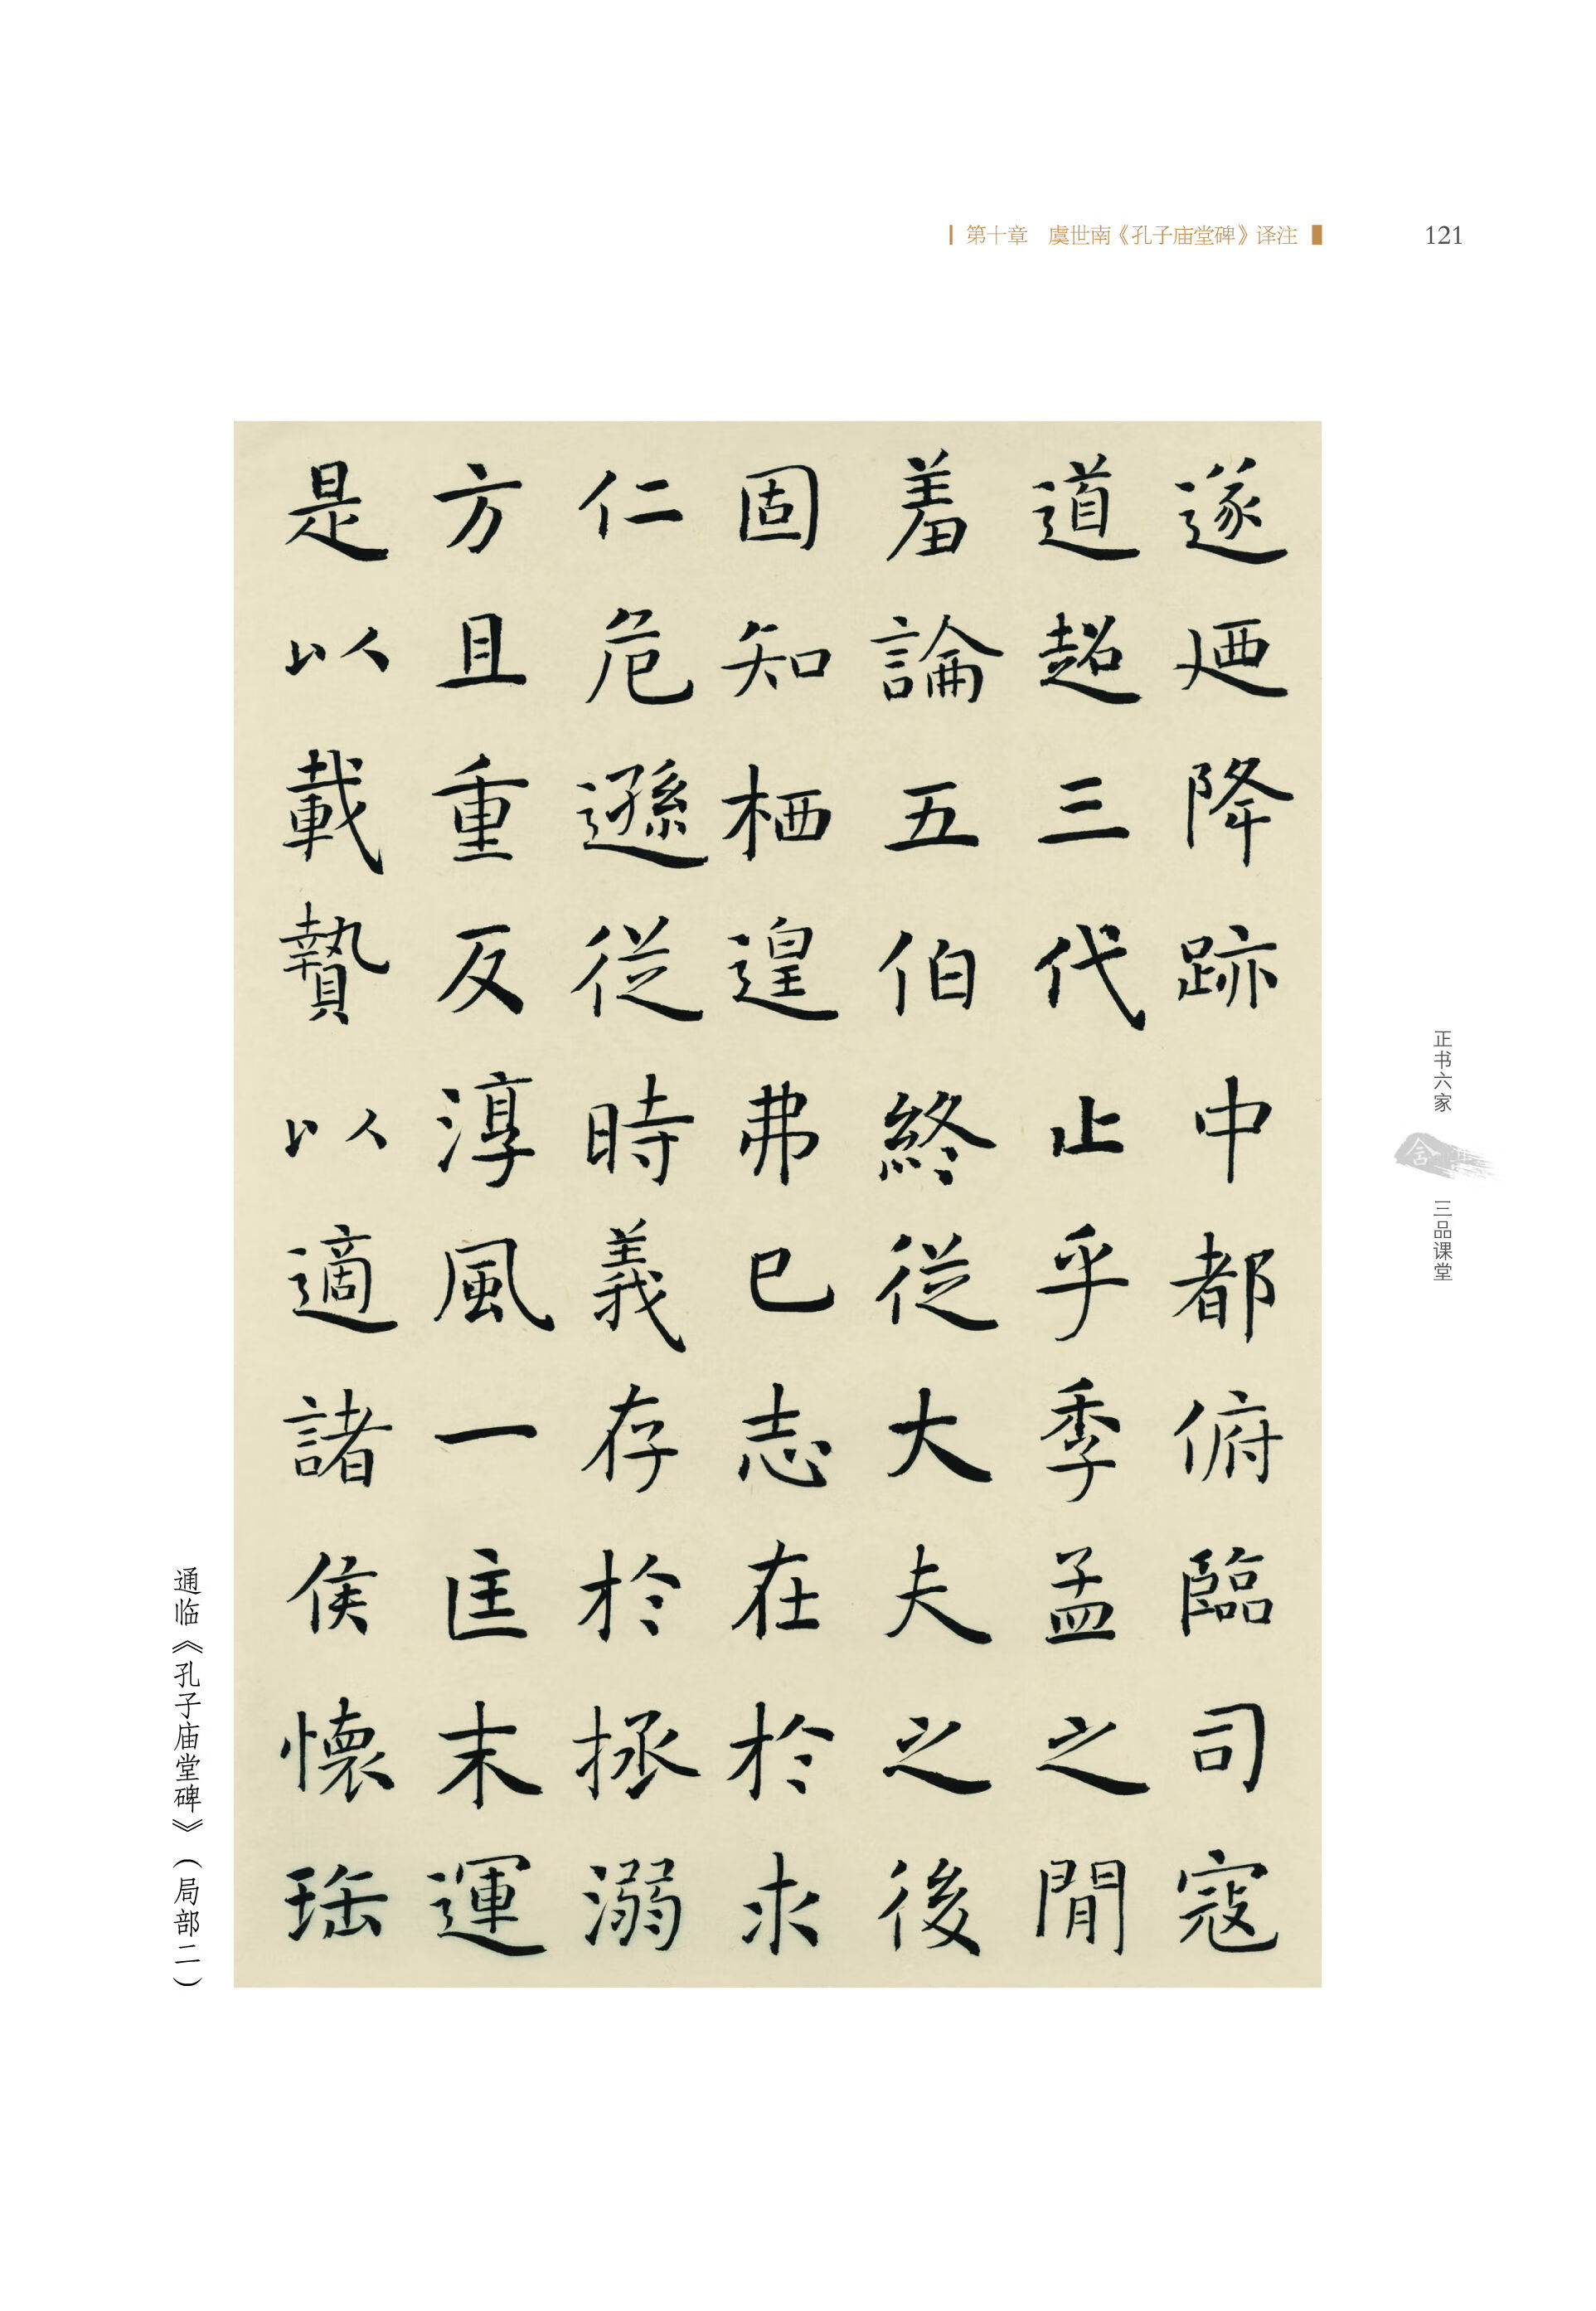 第十章 虞世南《孔子庙堂碑》译注
121
遂迺降跡中都俯臨司寇
道超三代止乎季孟之閒
羞論五伯終從大夫之後
固知栖遑弗已志在於求
仁危遜從時義存於拯溺
方且重反淳風一匡末運
是以載贄以適諸侯懷珤
通临《孔子庙堂碑》（局部二）
正书六家
三品课堂